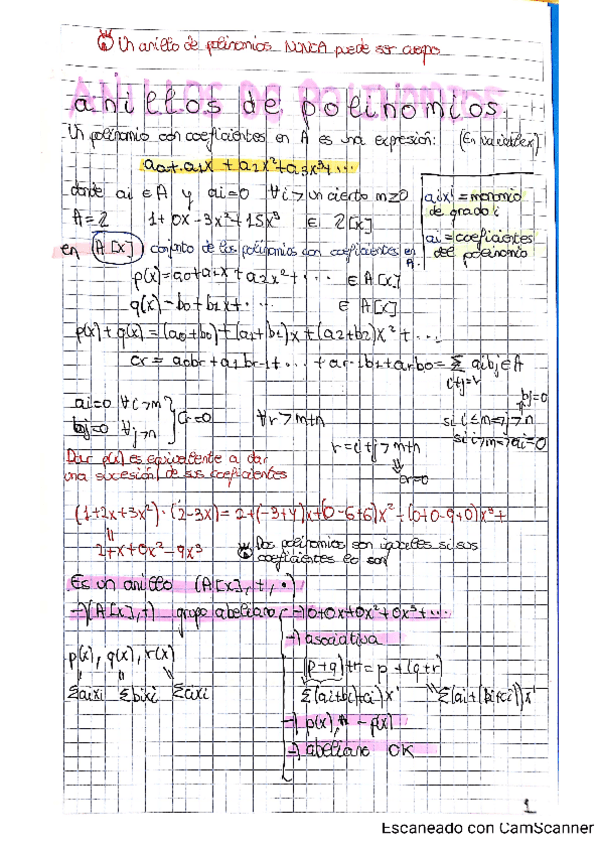 Un anillo de polinomios NUNCA puede ser cuerpo
ANILLOS DE POLINOMIOS
anillos de polinomios
Un polinomio con coeficientes en A es una expresión: (En variable x)
a0+a1x + a2x²+a3x³+...
donde ai ∈ A y ai=0 ∀i > un cierto m≥0
aixⁱ = monomio de grado i
ai = coeficientes del polinomio
A=Z 1+0x-3x²+15x³ ∈ Z[x]
en A[x] conjunto de los polinomios con coeficientes en A.
p(x)=a0+a1x+a2x²+... ∈ A[x]
q(x)=b0+b1x+... ∈ A[x]
p(x)+q(x)=(a0+b0)+(a1+b1)x+(a2+b2)x²+...
cr = a0br+a1br-1+...+ar-1b1+arb0=Σ aibj ∈ A
i+j=r
ai=0 ∀i>m
bj=0 ∀j>n
cr=0 ∀r>m+n
bj=0
si i≤m⇒j>n
si i>m⇒ai=0
r=i+j>m+n
⇓
cr=0
Dar p(x) es equivalente a dar
una sucesión de sus coeficientes
(1+2x+3x²)·(2-3x)=2+(-3+4)x+(0-6+6)x²+(0+0-9+0)x³+
=
2+x+0x²-9x³
Dos polinomios son iguales si sus
coeficientes lo son
Es un anillo (A[x],+,·)
→(A[x],+) grupo abeliano
→ 0+0x+0x²+0x³+...
→ asociativa
p(x), q(x), r(x)
Σaixi Σbixi Σcixi
(p+q)+r=p+(q+r)
Σ(ai+bi)+ci)xⁱ Σ(ai+(bi+ci))xⁱ
→ p(x), -p(x)
→ abeliano OK
1
Escaneado con CamScanner